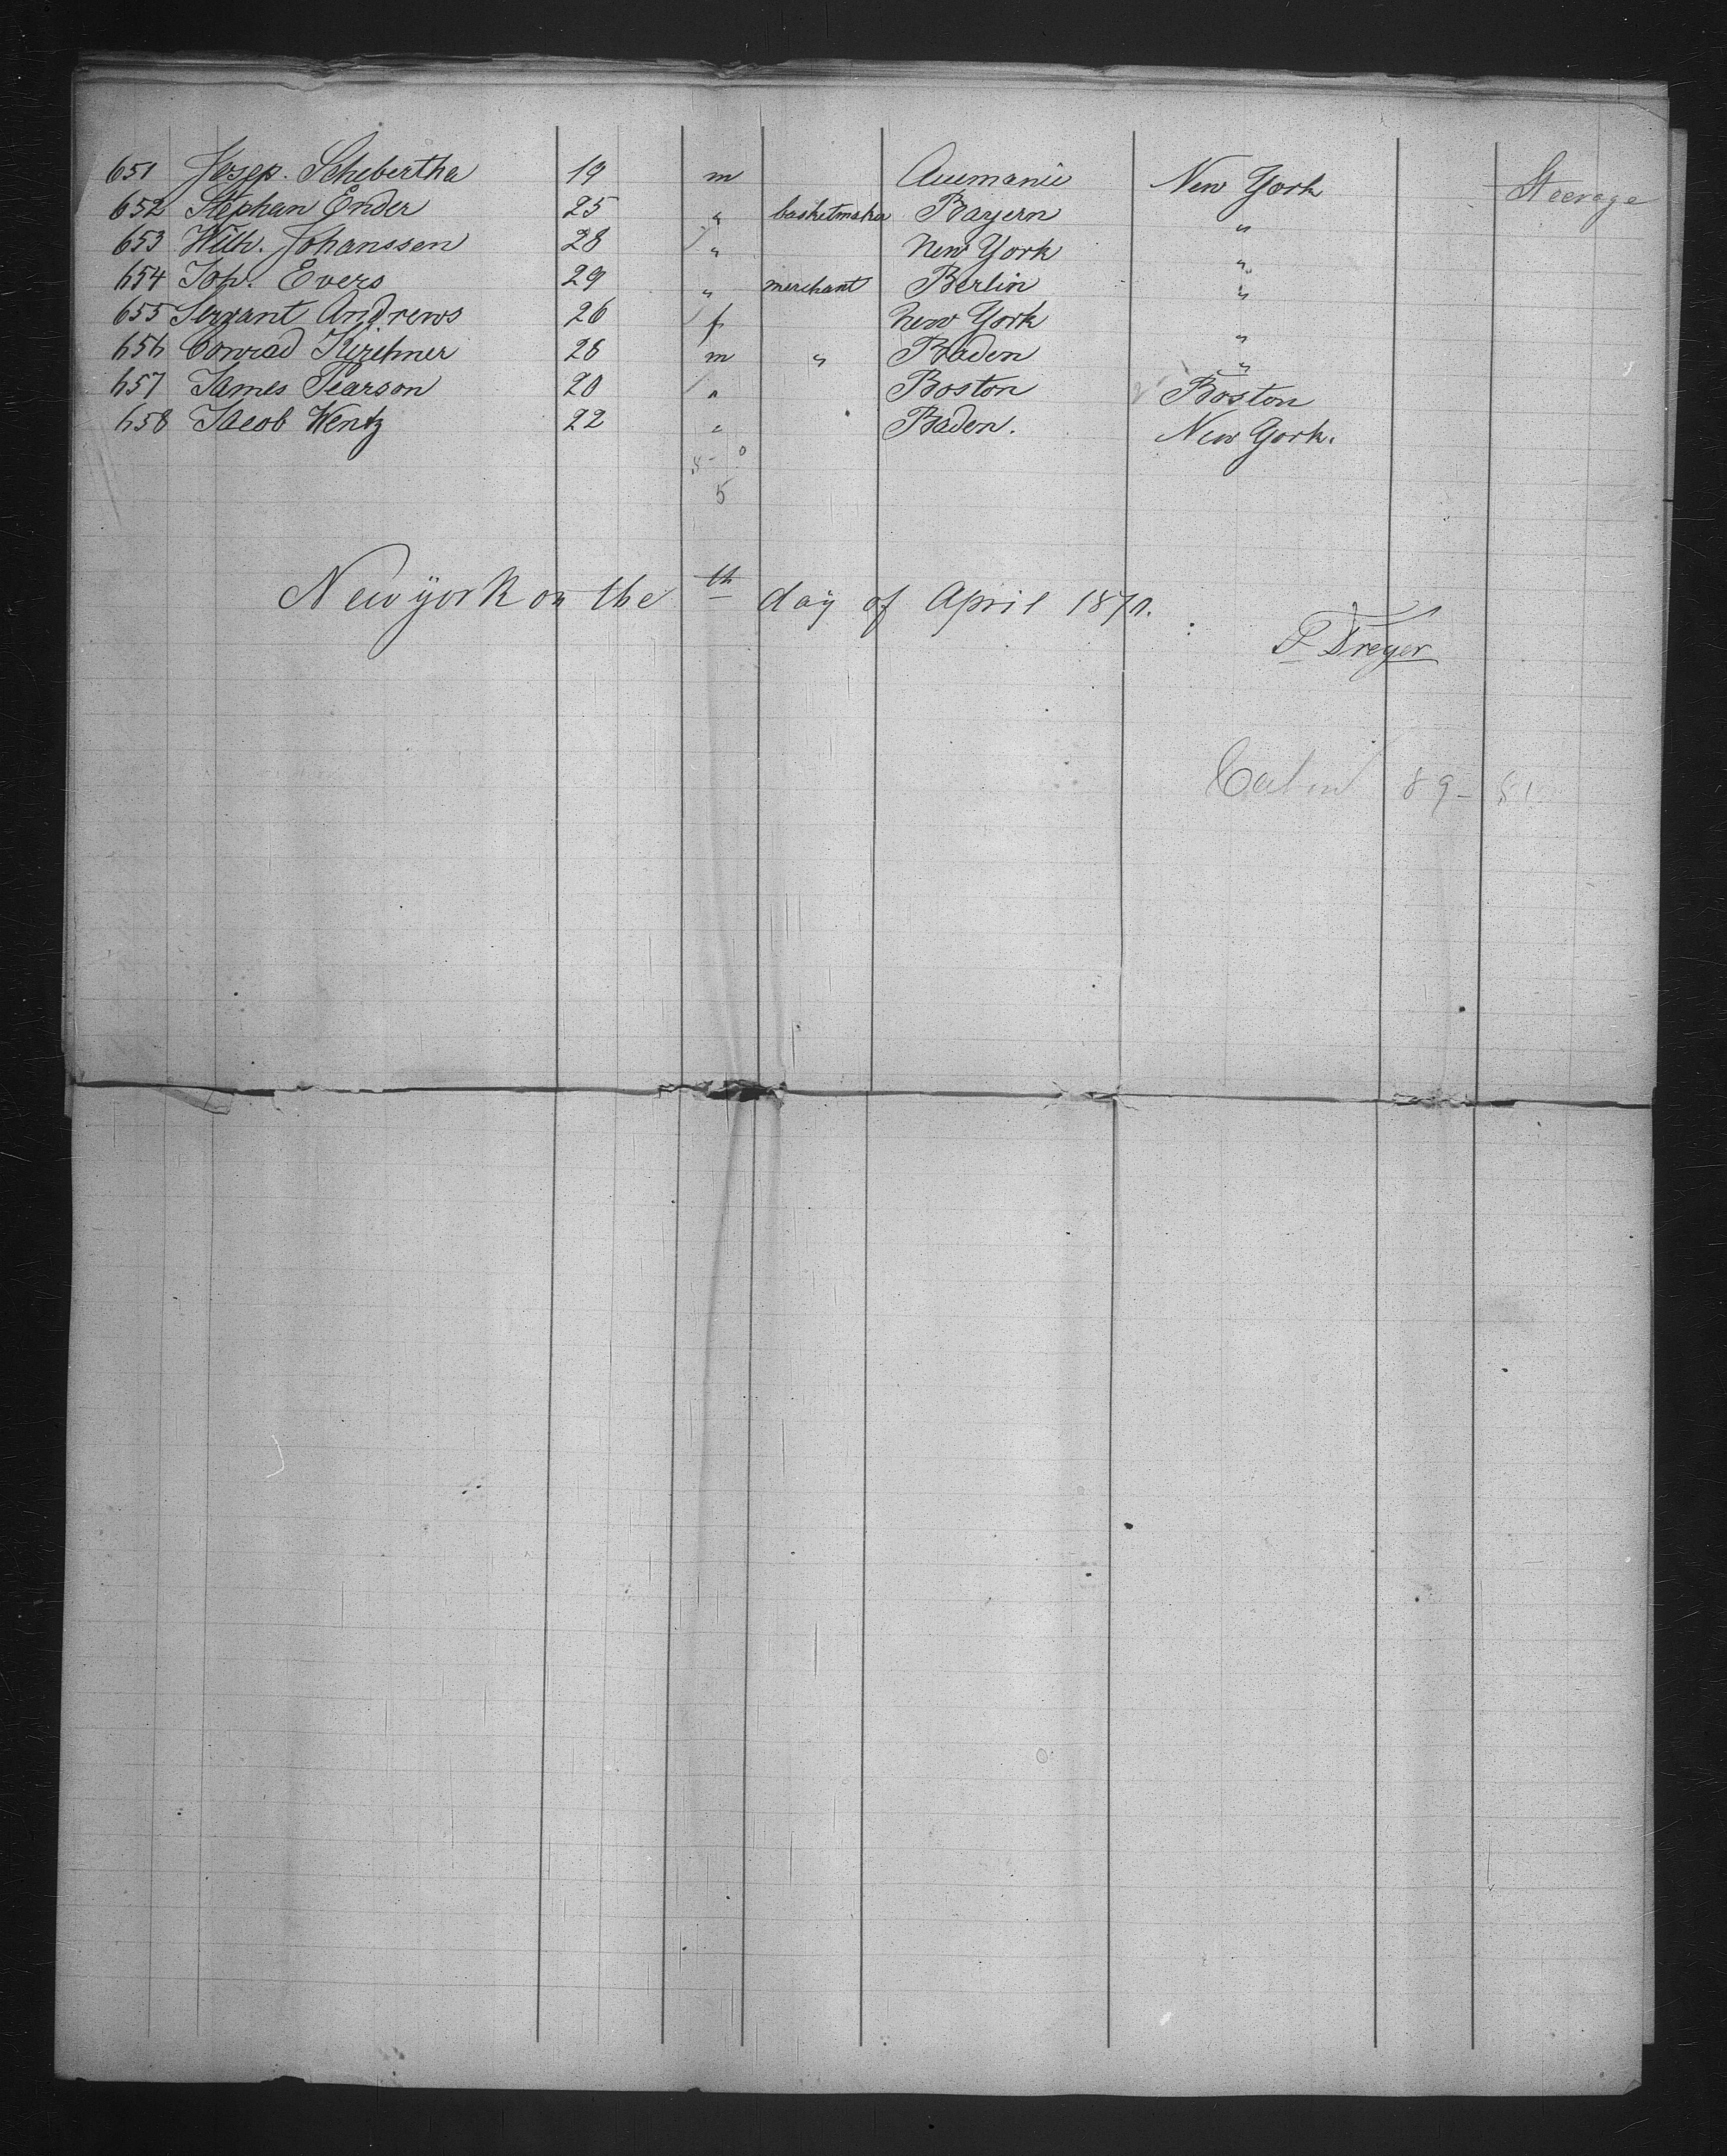 651 Josep. Schebertha 19 m New York Steerage
652 Stephan Ender 25 " basketmaker Bayern "
653 Wilh. Johanssen 28 " New York "
654 Joh. Evers 29 " merchant Berlin "
655 Servant Andrews 26 f New York "
656 Conrad Kirchner 28 m " Baden "
657 James Pearson 20 " Boston Boston
658 Jacob Wentz 22 " Baden. New York.
5
New york on the th day of April 1870.
Dreyer
Cabin 89 - 51